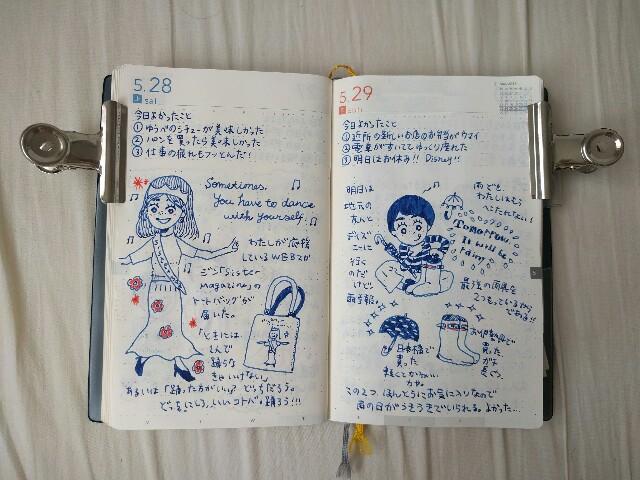 5.28
sat
今日よかったこと
① ゆうべのシチューが美味しかった
② パンを買ったら美味しかった
③ 仕事の疲れもフッとんだ!
Sometimes,
You have to dance
with yourself.
わたしが応援
しているWEBZが
ジン「Sister
magazine」の
トートバッグが
届いた。
「ときには、
踊らな
きゃいけない」
あるいは「踊った方がいい」? どっちだろう。
どっちにしろ、いいコトバ。踊ろう!!!
5.29
sun
今日よかったこと
① 近所の新しいお店のお弁当がウマイ
② 電車がすいててゆっくり座れた
③ 明日はお休み!! Disney!!
明日は
地元の
友人と
ディズ
ニーに
行く
のだ
けど、
雨予報。
雨でも、
わたしはもう
へこたれない!
Tomorrow,
It will be
rainy
最強の雨具を
2つもっているから
である!!
日本橋で
買った
買った
この2つ ほんとうにお気に入りなので
雨の日がうきうきでいられる。よかった…